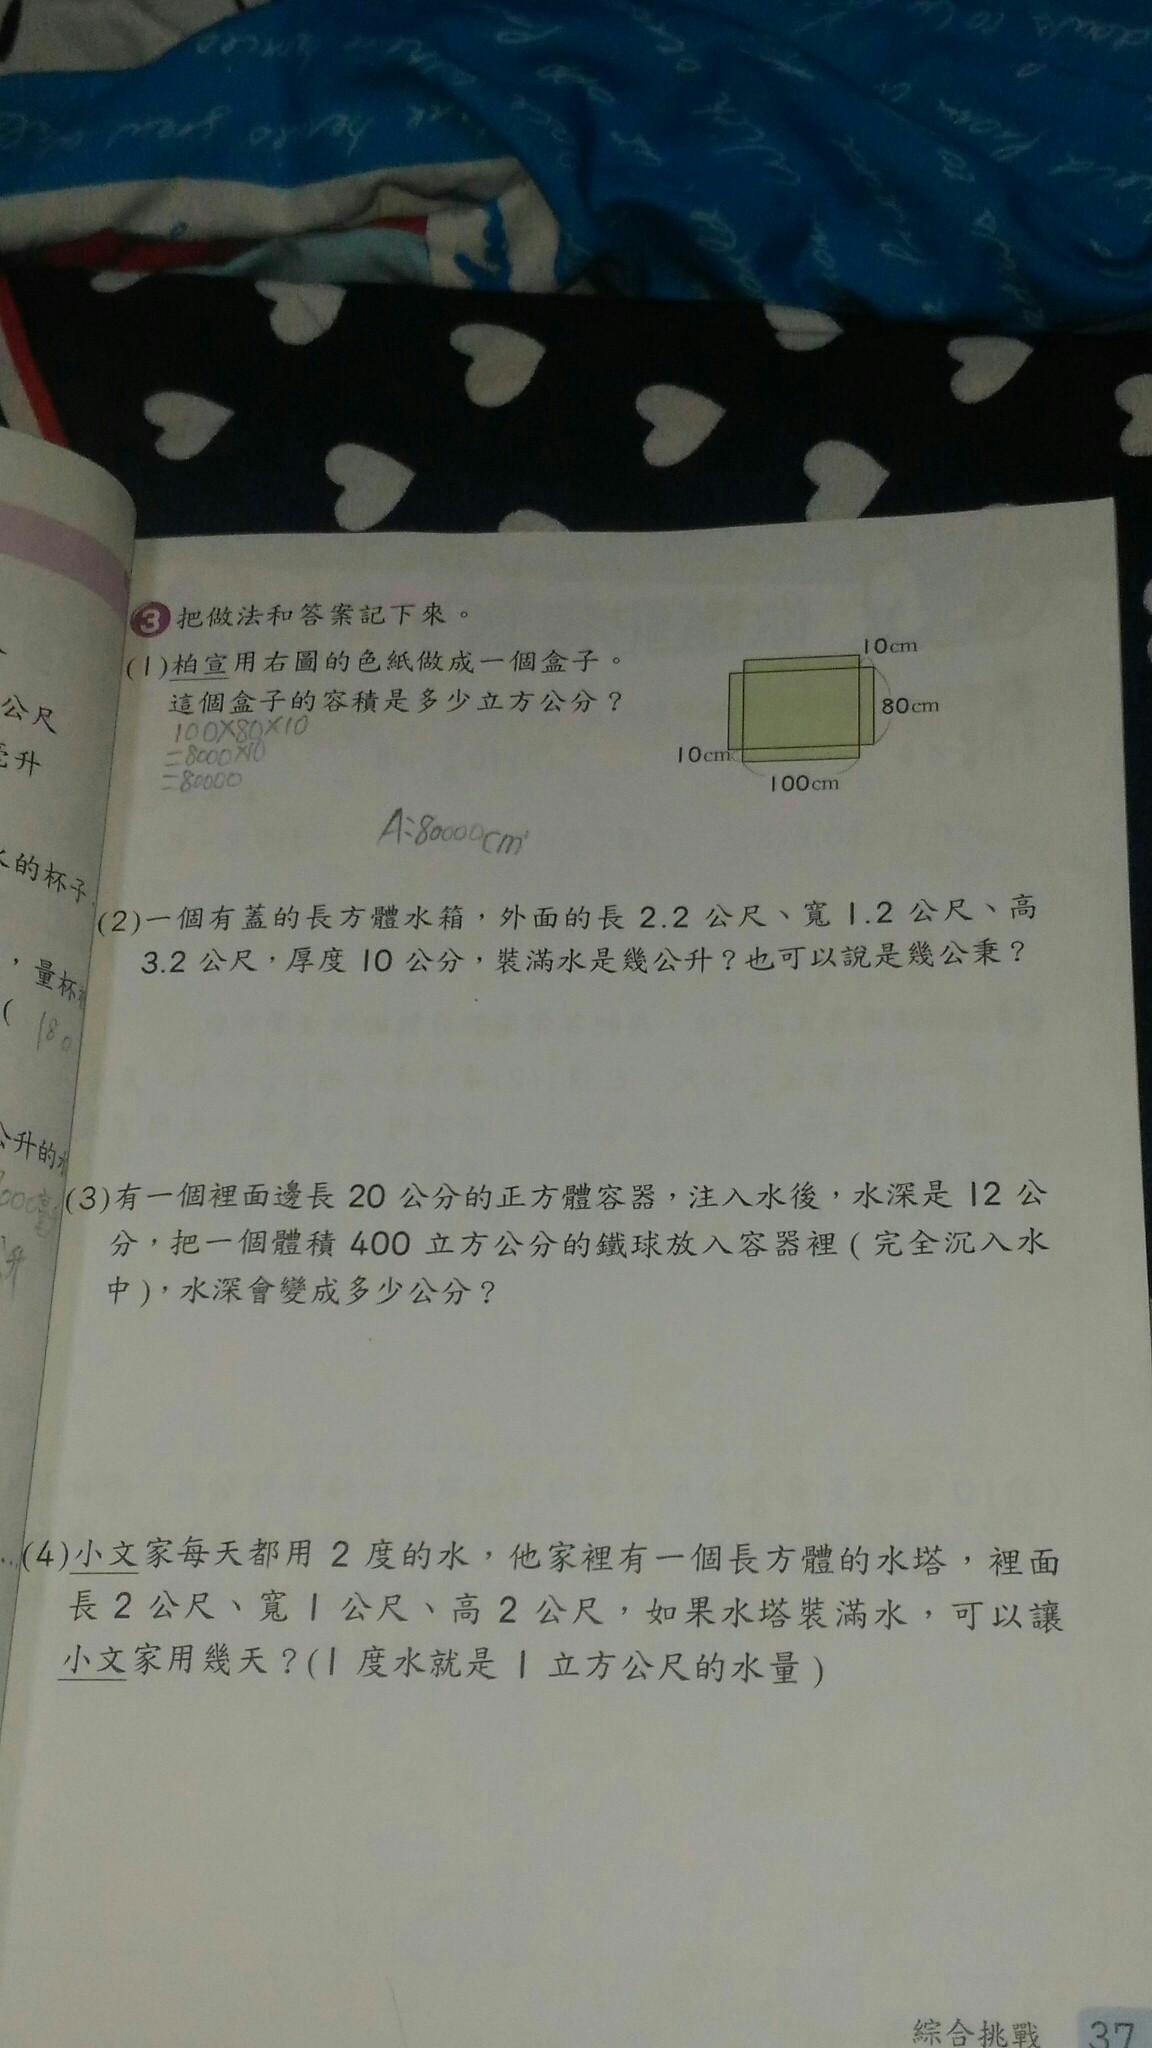 公尺
升
水的杯子
，量杯
( 180
公升的
3 把做法和答案記下來。
(1)柏宣用右圖的色紙做成一個盒子。
這個盒子的容積是多少立方公分？
100×80×10
=8000×10
=80000
A:80000cm³
10cm
80cm
10cm
100cm
(2)一個有蓋的長方體水箱，外面的長 2.2 公尺、寬 1.2 公尺、高
3.2 公尺，厚度 10 公分，裝滿水是幾公升？也可以說是幾公秉？
(3)有一個裡面邊長 20 公分的正方體容器，注入水後，水深是 12 公
分，把一個體積 400 立方公分的鐵球放入容器裡(完全沉入水
中)，水深會變成多少公分？
(4)小文家每天都用 2 度的水，他家裡有一個長方體的水塔，裡面
長 2 公尺、寬 1 公尺、高 2 公尺，如果水塔裝滿水，可以讓
小文家用幾天？(1 度水就是 1 立方公尺的水量)
綜合挑戰 37